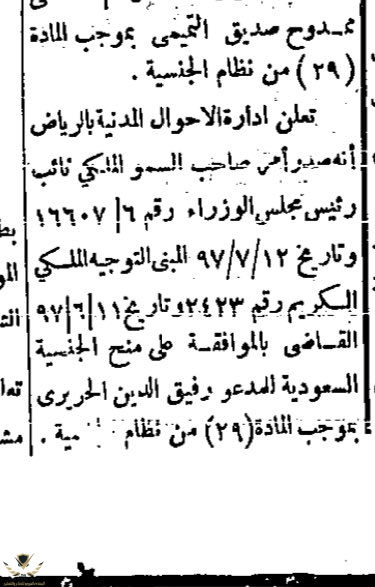 ممدوح صديق التميمى بموجب المادة
(٢٩) من نظام الجنسية .
تعلن ادارة الاحوال المدنية بالرياض
أنه صدر أمر صاحب السمو الملكي نائب
رئيس مجلس الوزراء رقم ٦/١٦٦٠٧
وتاريخ ٩٧/٧/١٢ المبنى التوجيه الملكي
الكريم رقم ٢٤٢٣ وتاريخ ٩٧/٦/١١
القاضى بالموافقة على منح الجنسية
السعودية للمدعو رفيق الدين الحريرى
بموجب المادة (٢٩) من نظام